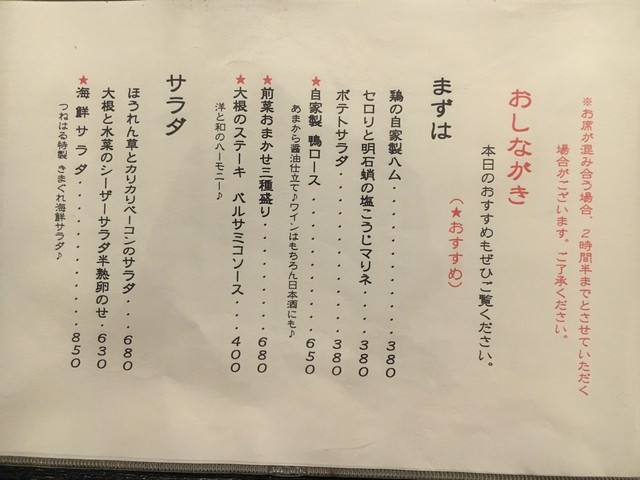 ※お席が混み合う場合、2時間半までとさせていただく
場合がございます。ご了承ください。
おしながき
本日のおすすめもぜひご覧ください。
(★おすすめ)
まずは
鶏の自家製ハム・・・・・・・・・・・・380
セロリと明石蛸の塩こうじマリネ・・・・380
ポテトサラダ・・・・・・・・・・・・・380
★自家製 鴨ロース・・・・・・・・・・・650
あまから醤油仕立て♪ワインはもちろん日本酒にも♪
★前菜おまかせ三種盛り・・・・・・・・・680
★大根のステーキ バルサミコソース・・・400
洋と和のハーモニー♪
サラダ
ほうれん草とカリカリベーコンのサラダ・・・680
大根と水菜のシーザーサラダ半熟卵のせ・630
★海鮮サラダ・・・・・・・・・・850
つねはる特製 きまぐれ海鮮サラダ♪